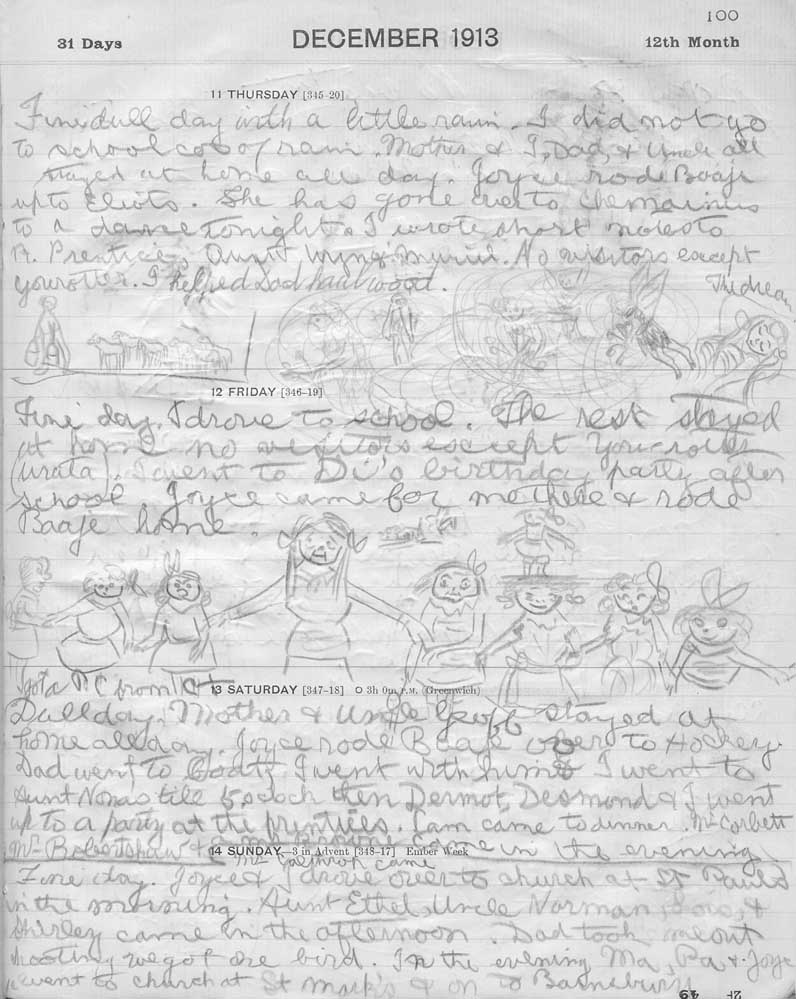 100
31 Days DECEMBER 1913 12th Month
11 THURSDAY [345-20]
Fine dull day with a little rain. I did not go
to school cos of rain. Mother & I, Dad, & Uncle all
stayed at home all day. Joyce rode Baaje
up to Eliots. She has gone over to Chemainus
to a dance tonight. I wrote short notes to
Prentice, Aunt Muriel. No visitors except
I helped Dad haul wood.
The dream
12 FRIDAY [346-19]
Fine day. I drove to school. The rest stayed
at home no visitors except
I went to Di's birthday party after
school. Joyce came for me there & rode
Baaje home.
I got a P.C from
13 SATURDAY [347-18] O 3h 0m P.M. (Greenwich)
Dull day. Mother & Uncle Geoff stayed at
home all day. Joyce rode Baaje over to Hockey.
Dad went to I went with him & I went to
Aunt Nona's till 5 oclock then Dermot, Desmond & I went
up to a party at the Prentices. came to dinner. Mr Corbett
Mr & came in the evening
14 SUNDAY—3 in Advent [348-17] Ember Week
Mr came
Fine day. Joyce & I drove over to church at St Pauls
in the morning. Aunt Ethel, Uncle Norman, &
Shirley came in the afternoon. Dad took me out
shooting we got one bird. In the evening Ma, Pa & Joyce
went to church at St Mark's & on to